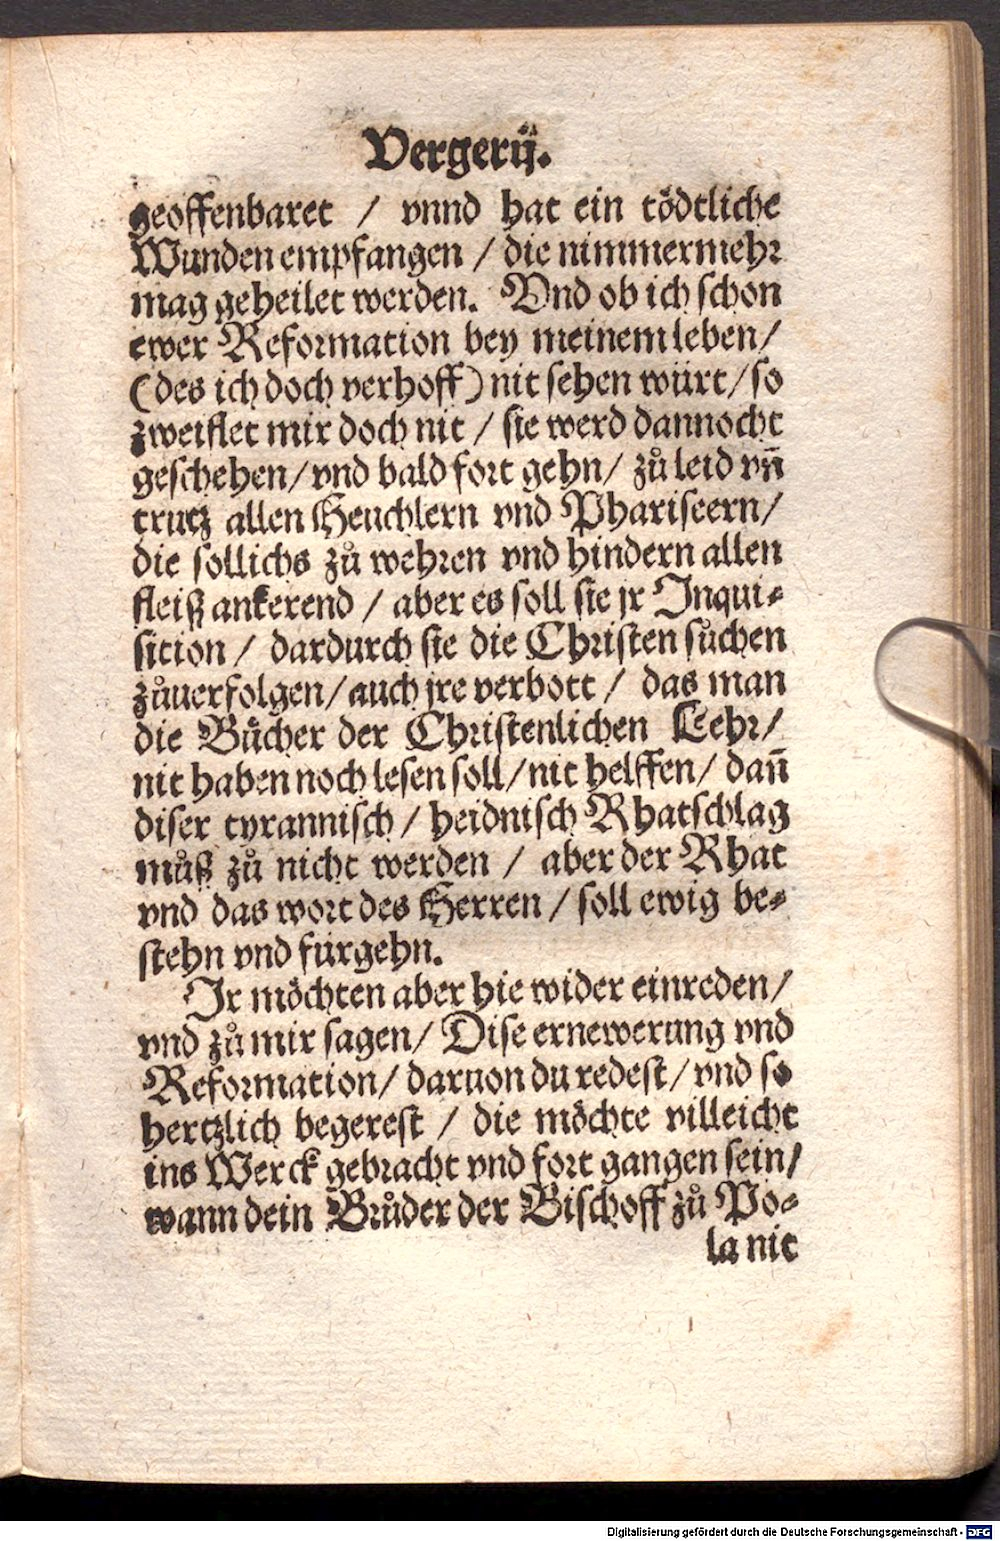 Vergerij.
geoffenbaret / vnnd hat ein tödtliche
Wunden empfangen / die nimmermehr
mag geheilet werden. Vnd ob ich schon
ewer Reformation bey meinem leben/
(des ich doch verhoff) nit sehen würt/ so
zweiflet mir doch nit / sie werd dannocht
geschehen/ vnd bald fort gehn/ zů leid vn̄
trutz allen Heuchlern vnd Phariseern/
die sollichs zů wehren vnd hindern allen
fleiß ankerend / aber es soll sie jr Inqui-
sition / dardurch sie die Christen sůchen
zůuerfolgen/ auch jre verbott / das man
die Bücher der Christenlichen Lehr/
nit haben noch lesen soll/ nit helffen/ dan̄
diser tyrannisch / heidnisch Rhatschlag
můß zů nicht werden / aber der Rhat
vnd das wort des Herren / soll ewig be-
stehn vnd fürgehn.
Ir möchten aber hie wider einreden/
vnd zů mir sagen/ Dise ernewerung vnd
Reformation/ daruon du redest/ vnd so
hertzlich begerest / die möchte villeicht
ins Werck gebracht vnd fort gangen sein/
wann dein Brůder der Bischoff zů Po-
la nit
Digitalisierung gefördert durch die Deutsche Forschungsgemeinschaft - DFG